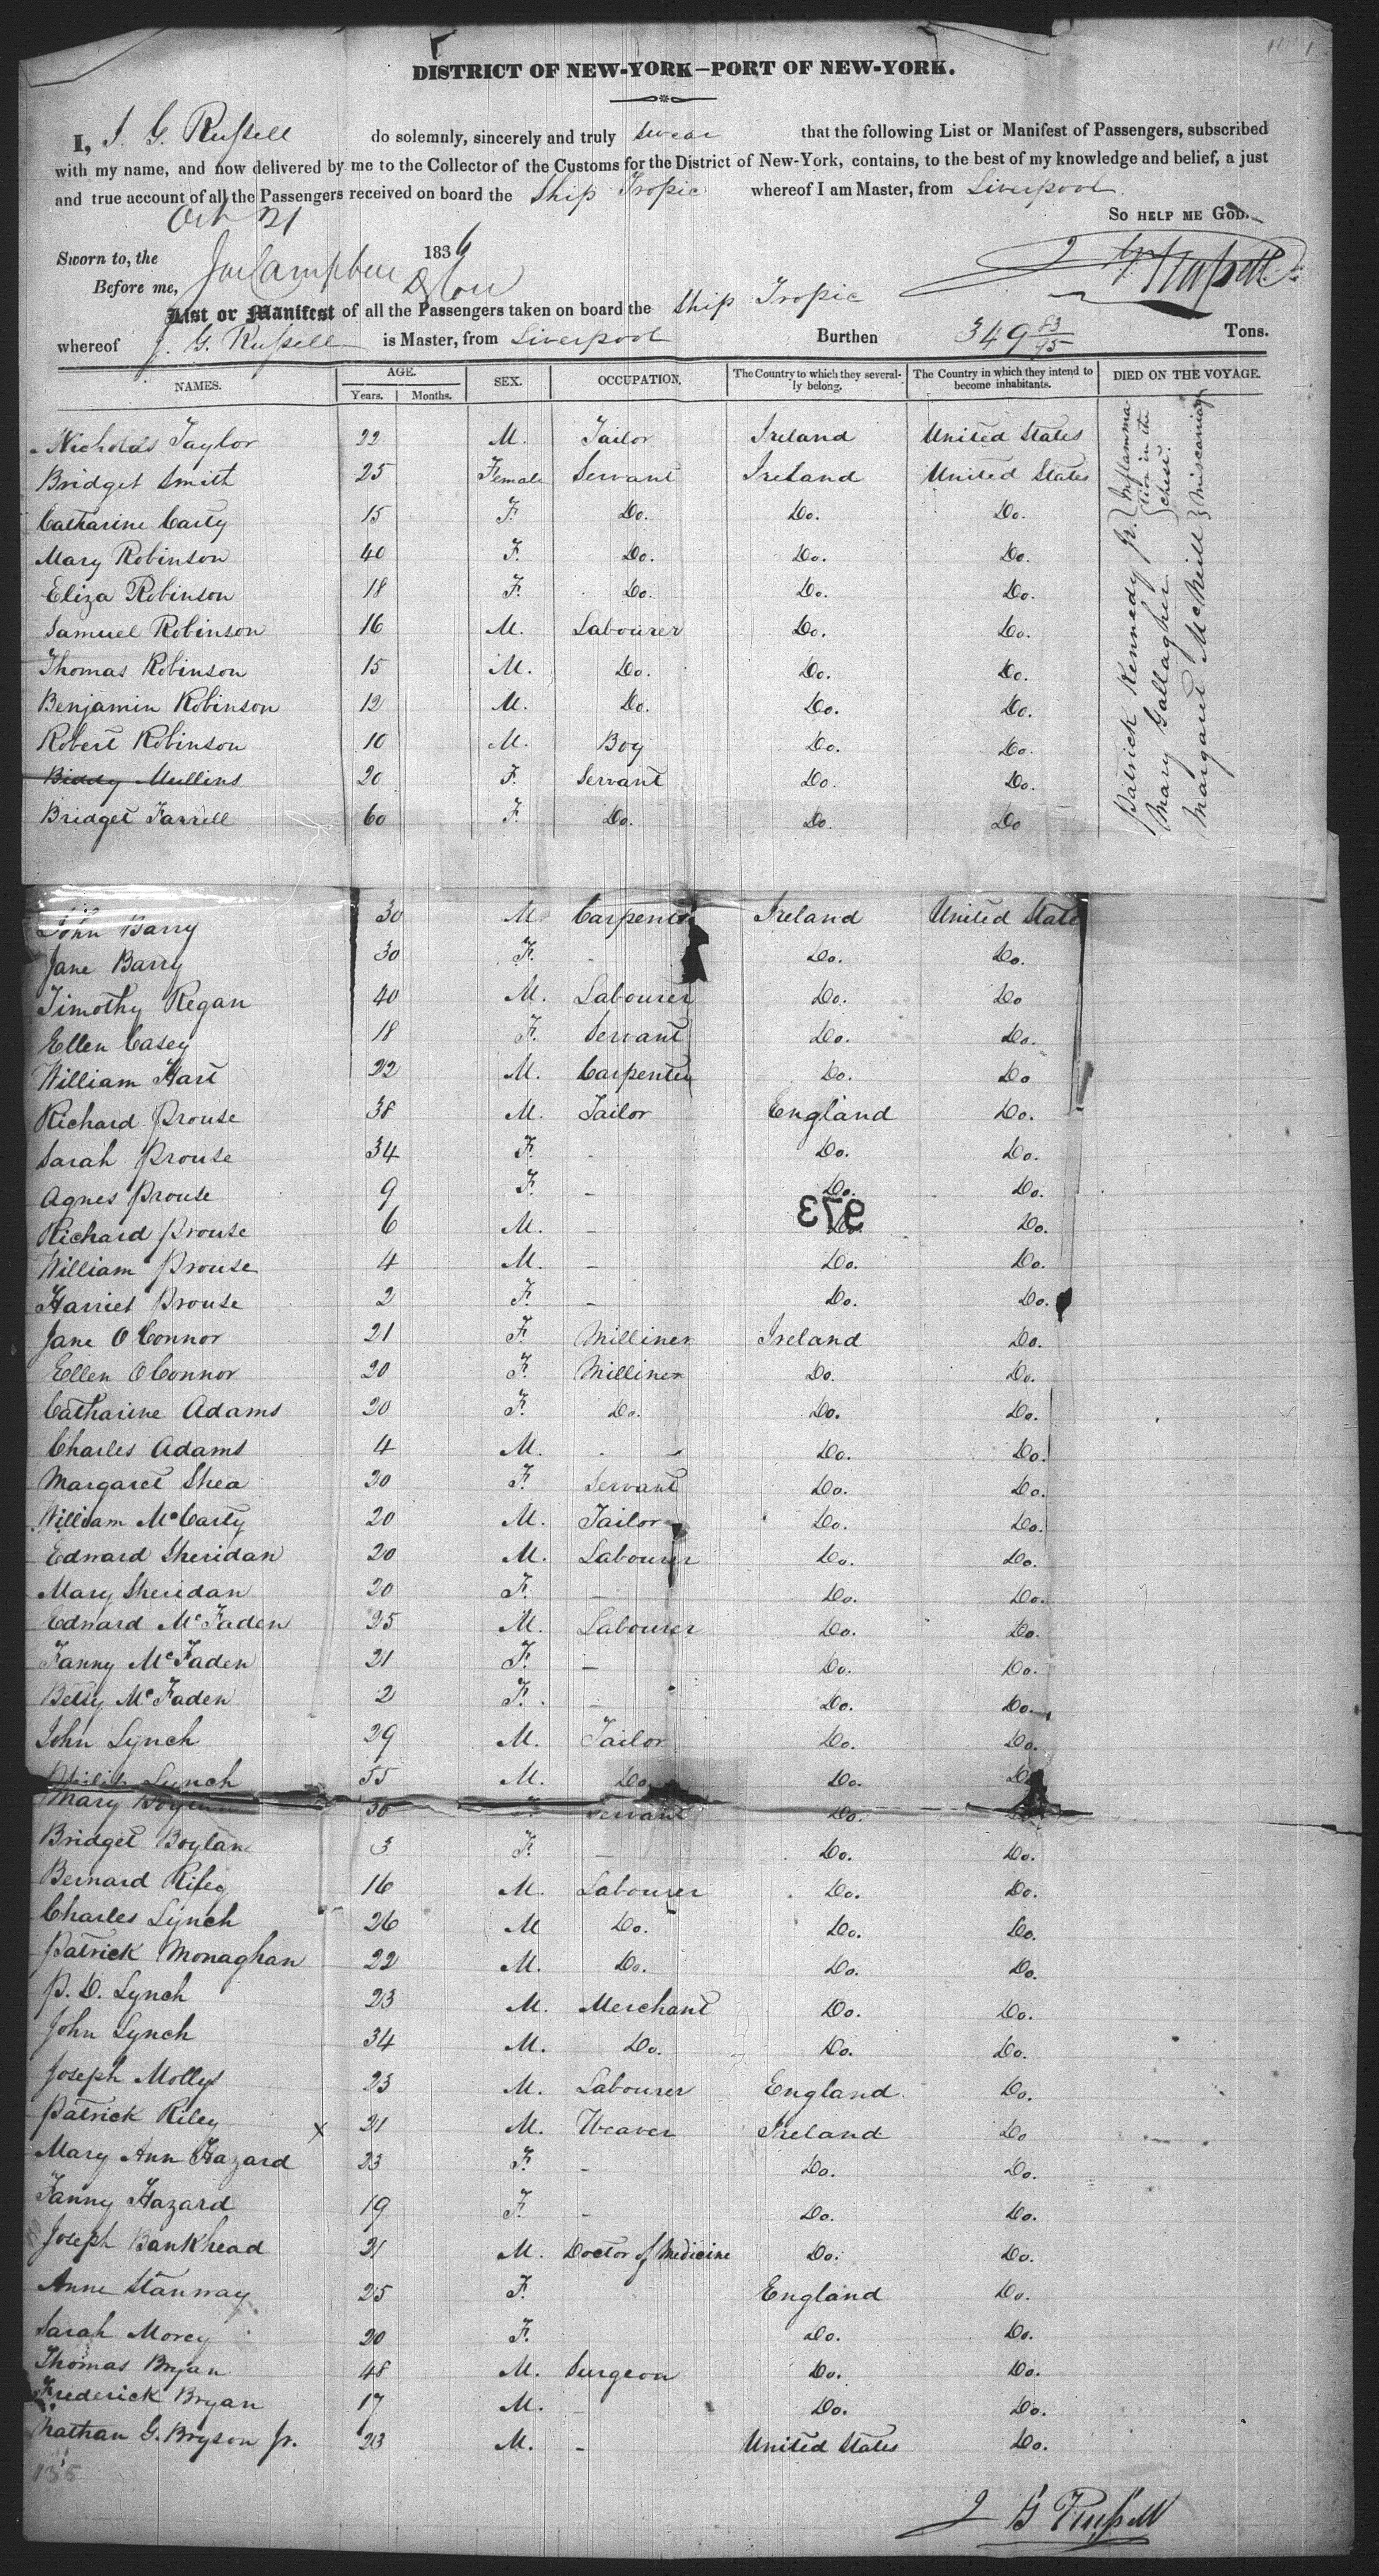 DISTRICT OF NEW-YORK—PORT OF NEW-YORK.
I, J. G. Russell do solemnly, sincerely and truly swear that the following List or Manifest of Passengers, subscribed
with my name, and now delivered by me to the Collector of the Customs for the District of New-York, contains, to the best of my knowledge and belief, a just
and true account of all the Passengers received on board the Ship Tropic whereof I am Master, from Liverpool
SO HELP ME GOD.
Sworn to, the Oct 21 1836
J G Russell
Before me,
List or Manifest of all the Passengers taken on board the Ship Tropic
whereof J. G. Russell is Master, from Liverpool Burthen 349 83/95 Tons.
NAMES. AGE. Years. Months. SEX. OCCUPATION. The Country to which they severally belong. The Country in which they intend to become inhabitants. DIED ON THE VOYAGE.
Nicholas Taylor 22 M. Tailor Ireland United States
Bridget Smith 25 Female Servant Ireland United States
Catharine Carty 15 F. Do. Do. Do.
Mary Robinson 40 F. Do. Do. Do.
Eliza Robinson 18 F. Do. Do. Do.
Samuel Robinson 16 M. Labourer Do. Do.
Thomas Robinson 15 M. Do. Do. Do.
Benjamin Robinson 12 M. Do. Do. Do.
Robert Robinson 10 M. Boy Do. Do.
Biddy Mullins 20 F. Servant Do. Do.
Bridget Farrell 60 F. Do. Do. Do
Patrick Kennedy Jr. } Inflammation in the chest.
Mary Gallagher
Margaret McNeill } Miscarriage
John Barry 30 M Carpenter Ireland United State
Jane Barry 30 F. - Do. Do.
Timothy Regan 40 M. Labourer Do. Do
Ellen Casey 18 F. Servant Do. Do.
William Hart 22 M. Carpenter Do. Do
Richard Prouse 38 M. Tailor England Do.
Sarah Prouse 34 F. - Do. Do.
Agnes Prouse 9 F. - Do. Do.
973
Richard Prouse 6 M. - Do. Do.
William Prouse 4 M. - Do. Do.
Harriet Prouse 2 F. - Do. Do.
Jane O Connor 21 F. Milliner Ireland Do.
Ellen O Connor 20 F. Milliner Do. Do.
Catharine Adams 20 F. Do. Do. Do.
Charles Adams 4 M. - Do. Do.
Margaret Shea 20 F. Servant Do. Do.
William McCarty 20 M. Tailor Do. Do.
Edward Sheridan 20 M. Labourer Do. Do.
Mary Sheridan 20 F. - Do. Do.
Edward McFaden 25 M. Labourer Do. Do.
Fanny McFaden 21 F. - Do. Do.
Betsy McFaden 2 F. - Do. Do.
John Lynch 29 M. Tailor Do. Do.
Philip Lynch 55 M. Do. Do. Do
Mary 30 F. Servant Do. Do.
Bridget Boylan 3 F. - Do. Do.
Bernard Riley 16 M. Labourer Do. Do.
Charles Lynch 26 M Do. Do. Do.
Patrick Monaghan 22 M. Do. Do. Do.
P. D. Lynch 23 M. Merchant Do. Do.
John Lynch 34 M. Do. Do. Do.
Joseph Mollys 23 M. Labourer England Do.
Patrick Riley x 21 M. Weaver Ireland Do
Mary Ann Hazard 23 F. - Do. Do.
Fanny Hazard 19 F. - Do. Do.
Joseph Bankhead 21 M. Doctor of Medicine Do. Do.
Anne Stanway 25 F. England Do.
Sarah Morey 20 F. Do. Do.
Thomas Bryan 48 M. Surgeon Do. Do.
Frederick Bryan 17 M. - Do. Do.
Nathan G. Bryson Jr. 23 M. - United States Do.
135
J G Russell